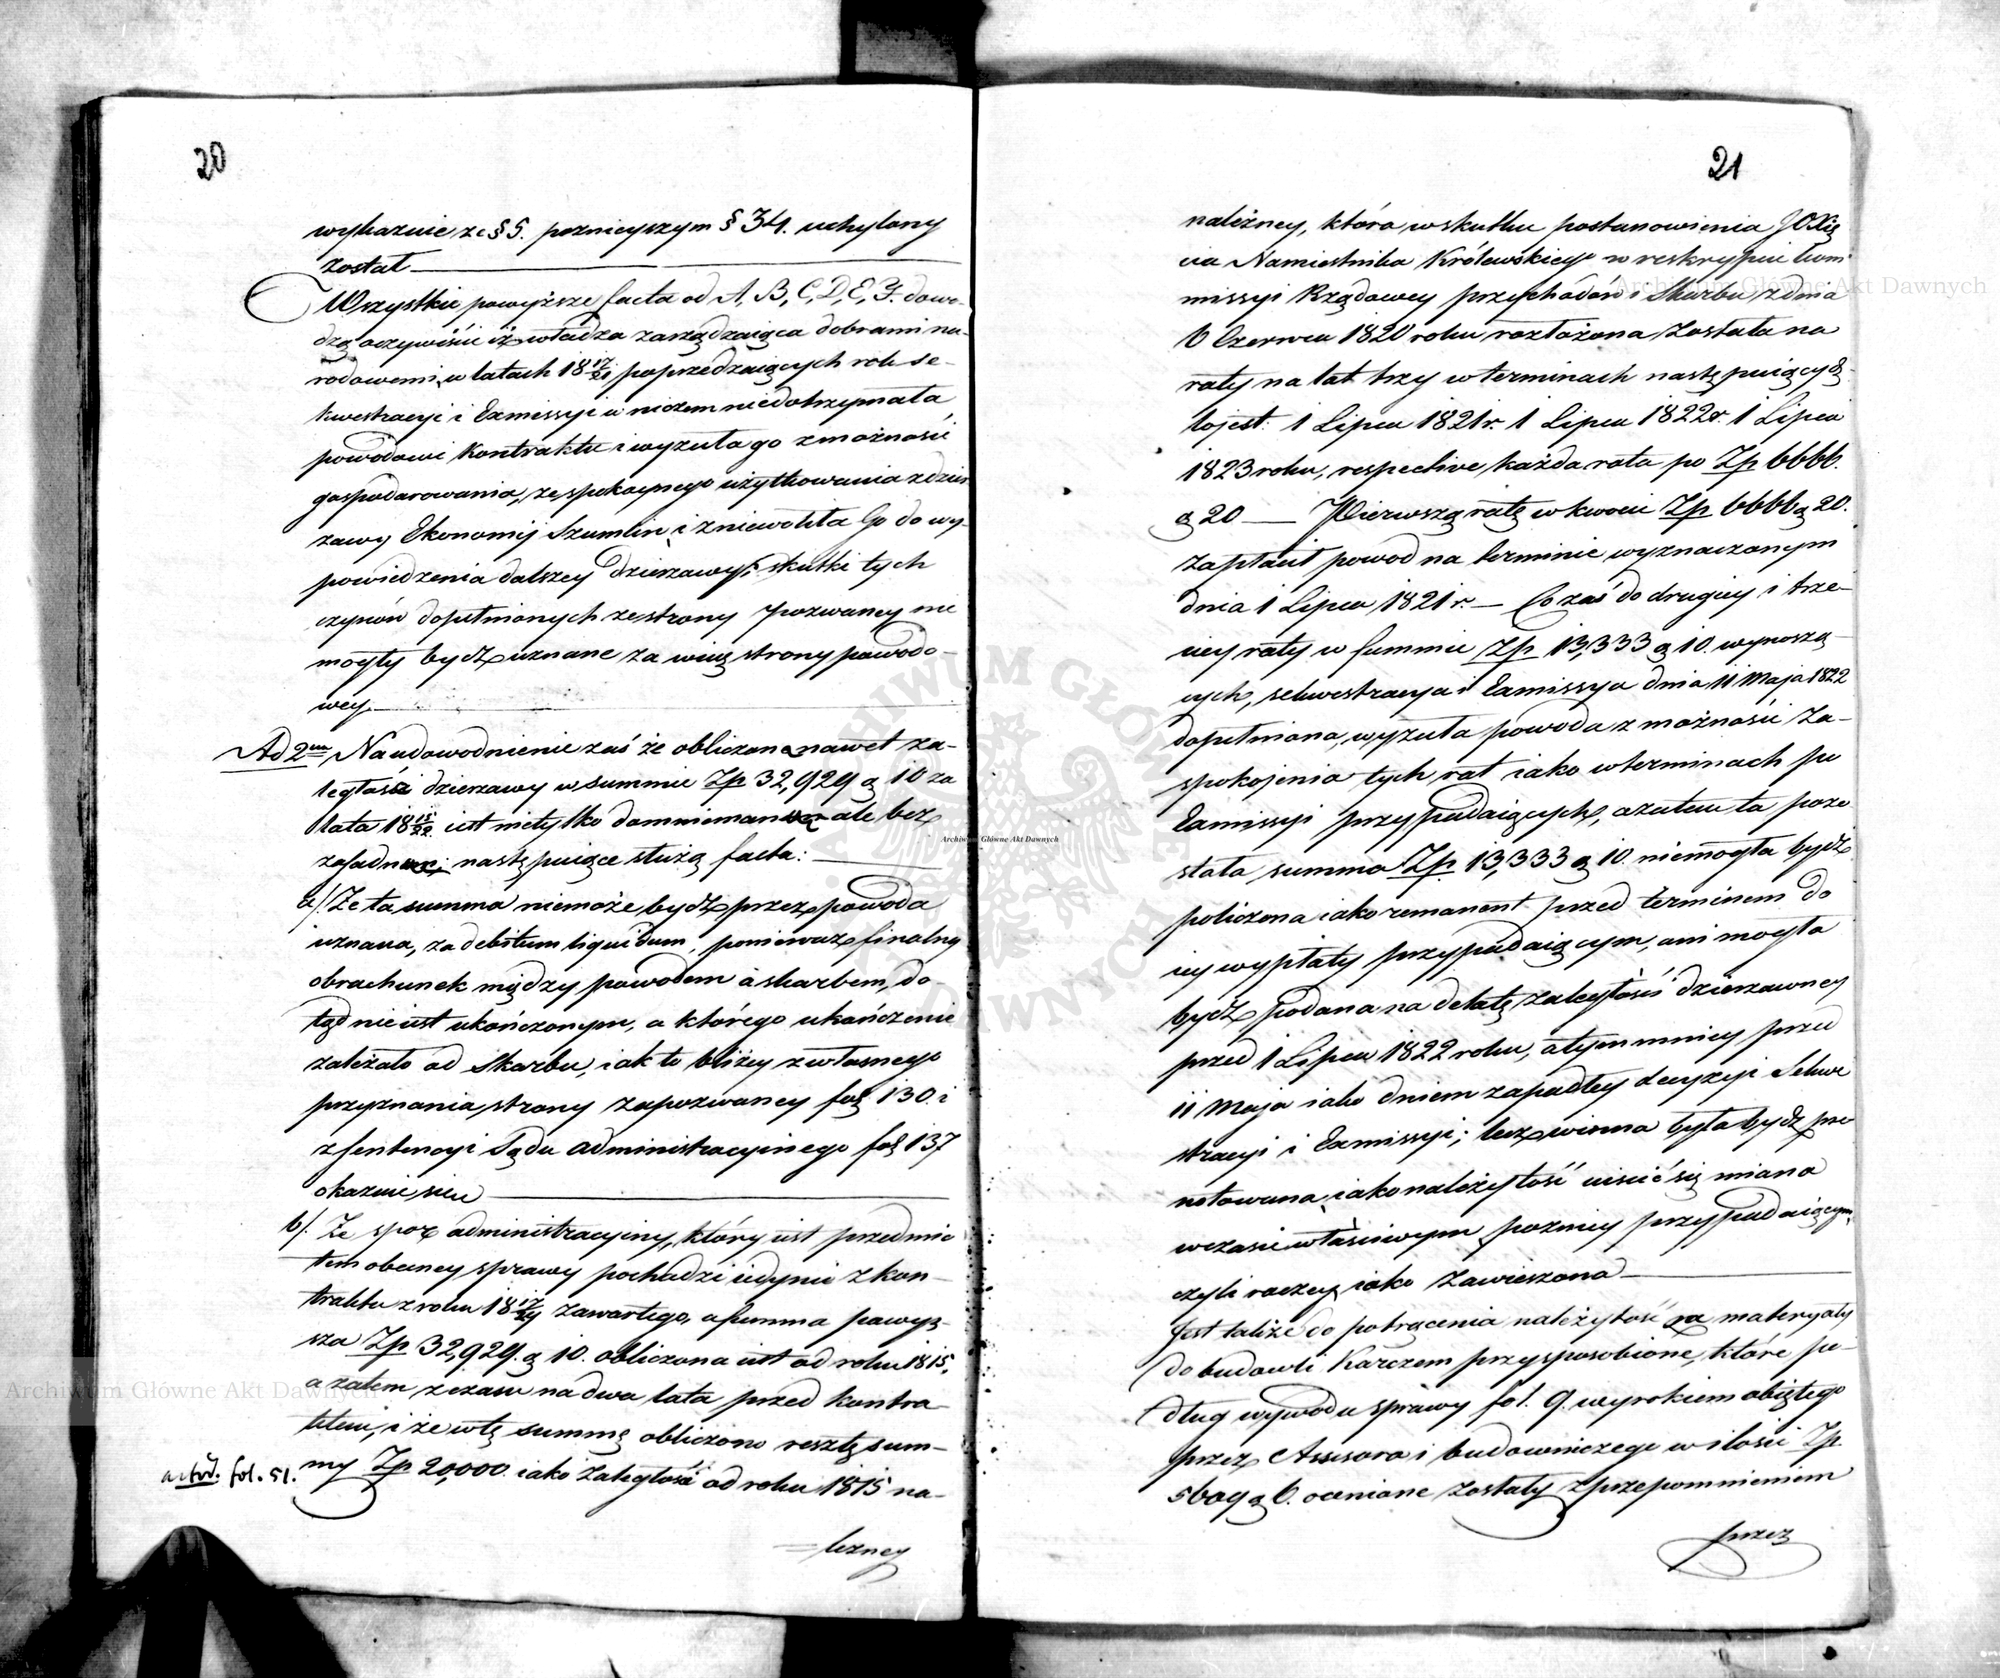 20
wykaznie ze § 5. poznieyszym § 34. uchylony
został
Wszystkie powyższe facta od A, B, C, D, E, F. dowo-
dzą oczywiście iż władza zarządzaiąca dobrami na-
rodowemi, w latach 18 17/21 poprzedzaiących rok se-
kwestracyi i Exmissyi w niczem niedotrzymała
powodowi Kontraktu i wyzuła go z możności
gospodarowania, ze spokoynego użytkowania z dzier
zawy Ekonomij Szumlin i zniewoliła Go do wy-
powiedzenia dalszey dzierzawy, skutki tych
czynów dopełnionych ze strony pozwaney nie
mogły bydź uznane za winę strony powodo-
wey.
Ad 2um Na udowodnienie zaś że obliczona nawet za-
ległość dzierzawy w summie Zp 32,929 g 10 za
lata 18 15/22 iest nietylko domniemaną ale bez
zasadną; następuiące służą facta:
a/. Ze ta summa niemoże bydź przez powoda
uznana, za debitum liquidum, ponieważ finalny
obrachunek między powodem a skarbem, do-
tąd nie iest ukończonym, a którego ukończenie
zależało od Skarbu, iak to bliżey z własnego
przyznania strony zapozwaney fol 130. i
z sentencyi Sądu administracyinego fol 137
okazuie sie
b/. Ze spor administracyiny, który iest przedmio
tem obecney sprawy pochodzi iedynie z kon-
traktu z roku 18 17/29 zawartego, a summa powyż-
sza Zp 32,929. g 10. obliczona iest od roku 1815,
a zatem z czasu na dwa lata przed kontra-
ktem, i że w tę summę obliczono resztę sum-
actor. fol. 51.
my Zp 20,000 iako zaległość od roku 1815 na-
leżney
21
należney, która w skutku postanowienia JO Xię
cia Namiestnika Królewskiego w reskrypcie kom
missyi Rządowey przychodów i Skarbu z dnia
6 Czerwca 1820 roku rozłożona została na
raty na lat trzy w terminach następuiących
to jest: 1 Lipca 1821 r. 1 Lipca 1822 r. 1 Lipca
1823 roku, respective, każda rata po Zp 6666.
g 20 — Pierwszą ratę w kwocie Zp 6666 g 20.
zapłacił powod na terminie wyznaczonym
dnia 1 Lipca 1821 r. — Co zaś do drugiey i trze-
ciey raty w summie Zp 13,333 g 10. wynoszą-
cych, sekwestracya i Exmissya dnia 11 Maja 1822
dopełniona, wyzuła powoda z możności za-
spokojenia tych rat iako w terminach po
Exmissyi przypadaiących, a zatem ta pozo
stała summa Zp 13,333 g 10. niemogła bydź
policzona iako remanent przed terminem do
iey wypłaty przypadaiącym, ani mogła
bydź podana na detatę zaległość dzierzawney
przed 1 Lipca 1822 roku, a tym mniey przed
11 Maja iako dniem zapadłey decyzyi Sekwe
stracyi i Exmissyi; lecz winna była bydź pre
notowana, iako należytość uiścić się miana
w czasie właściwym pozniey przypadaiącym,
czyli raczey iako zawieszona
Jest także do potrącenia należytość za materyały
do budowli Karczem przysposobione, które po-
dług wywodu sprawy fol. 9. wyrokiem obiętego
przez Assesora i budowniczego w ilości Zp
5609 g 6. ocenione zostały z przepomnieniem
przez